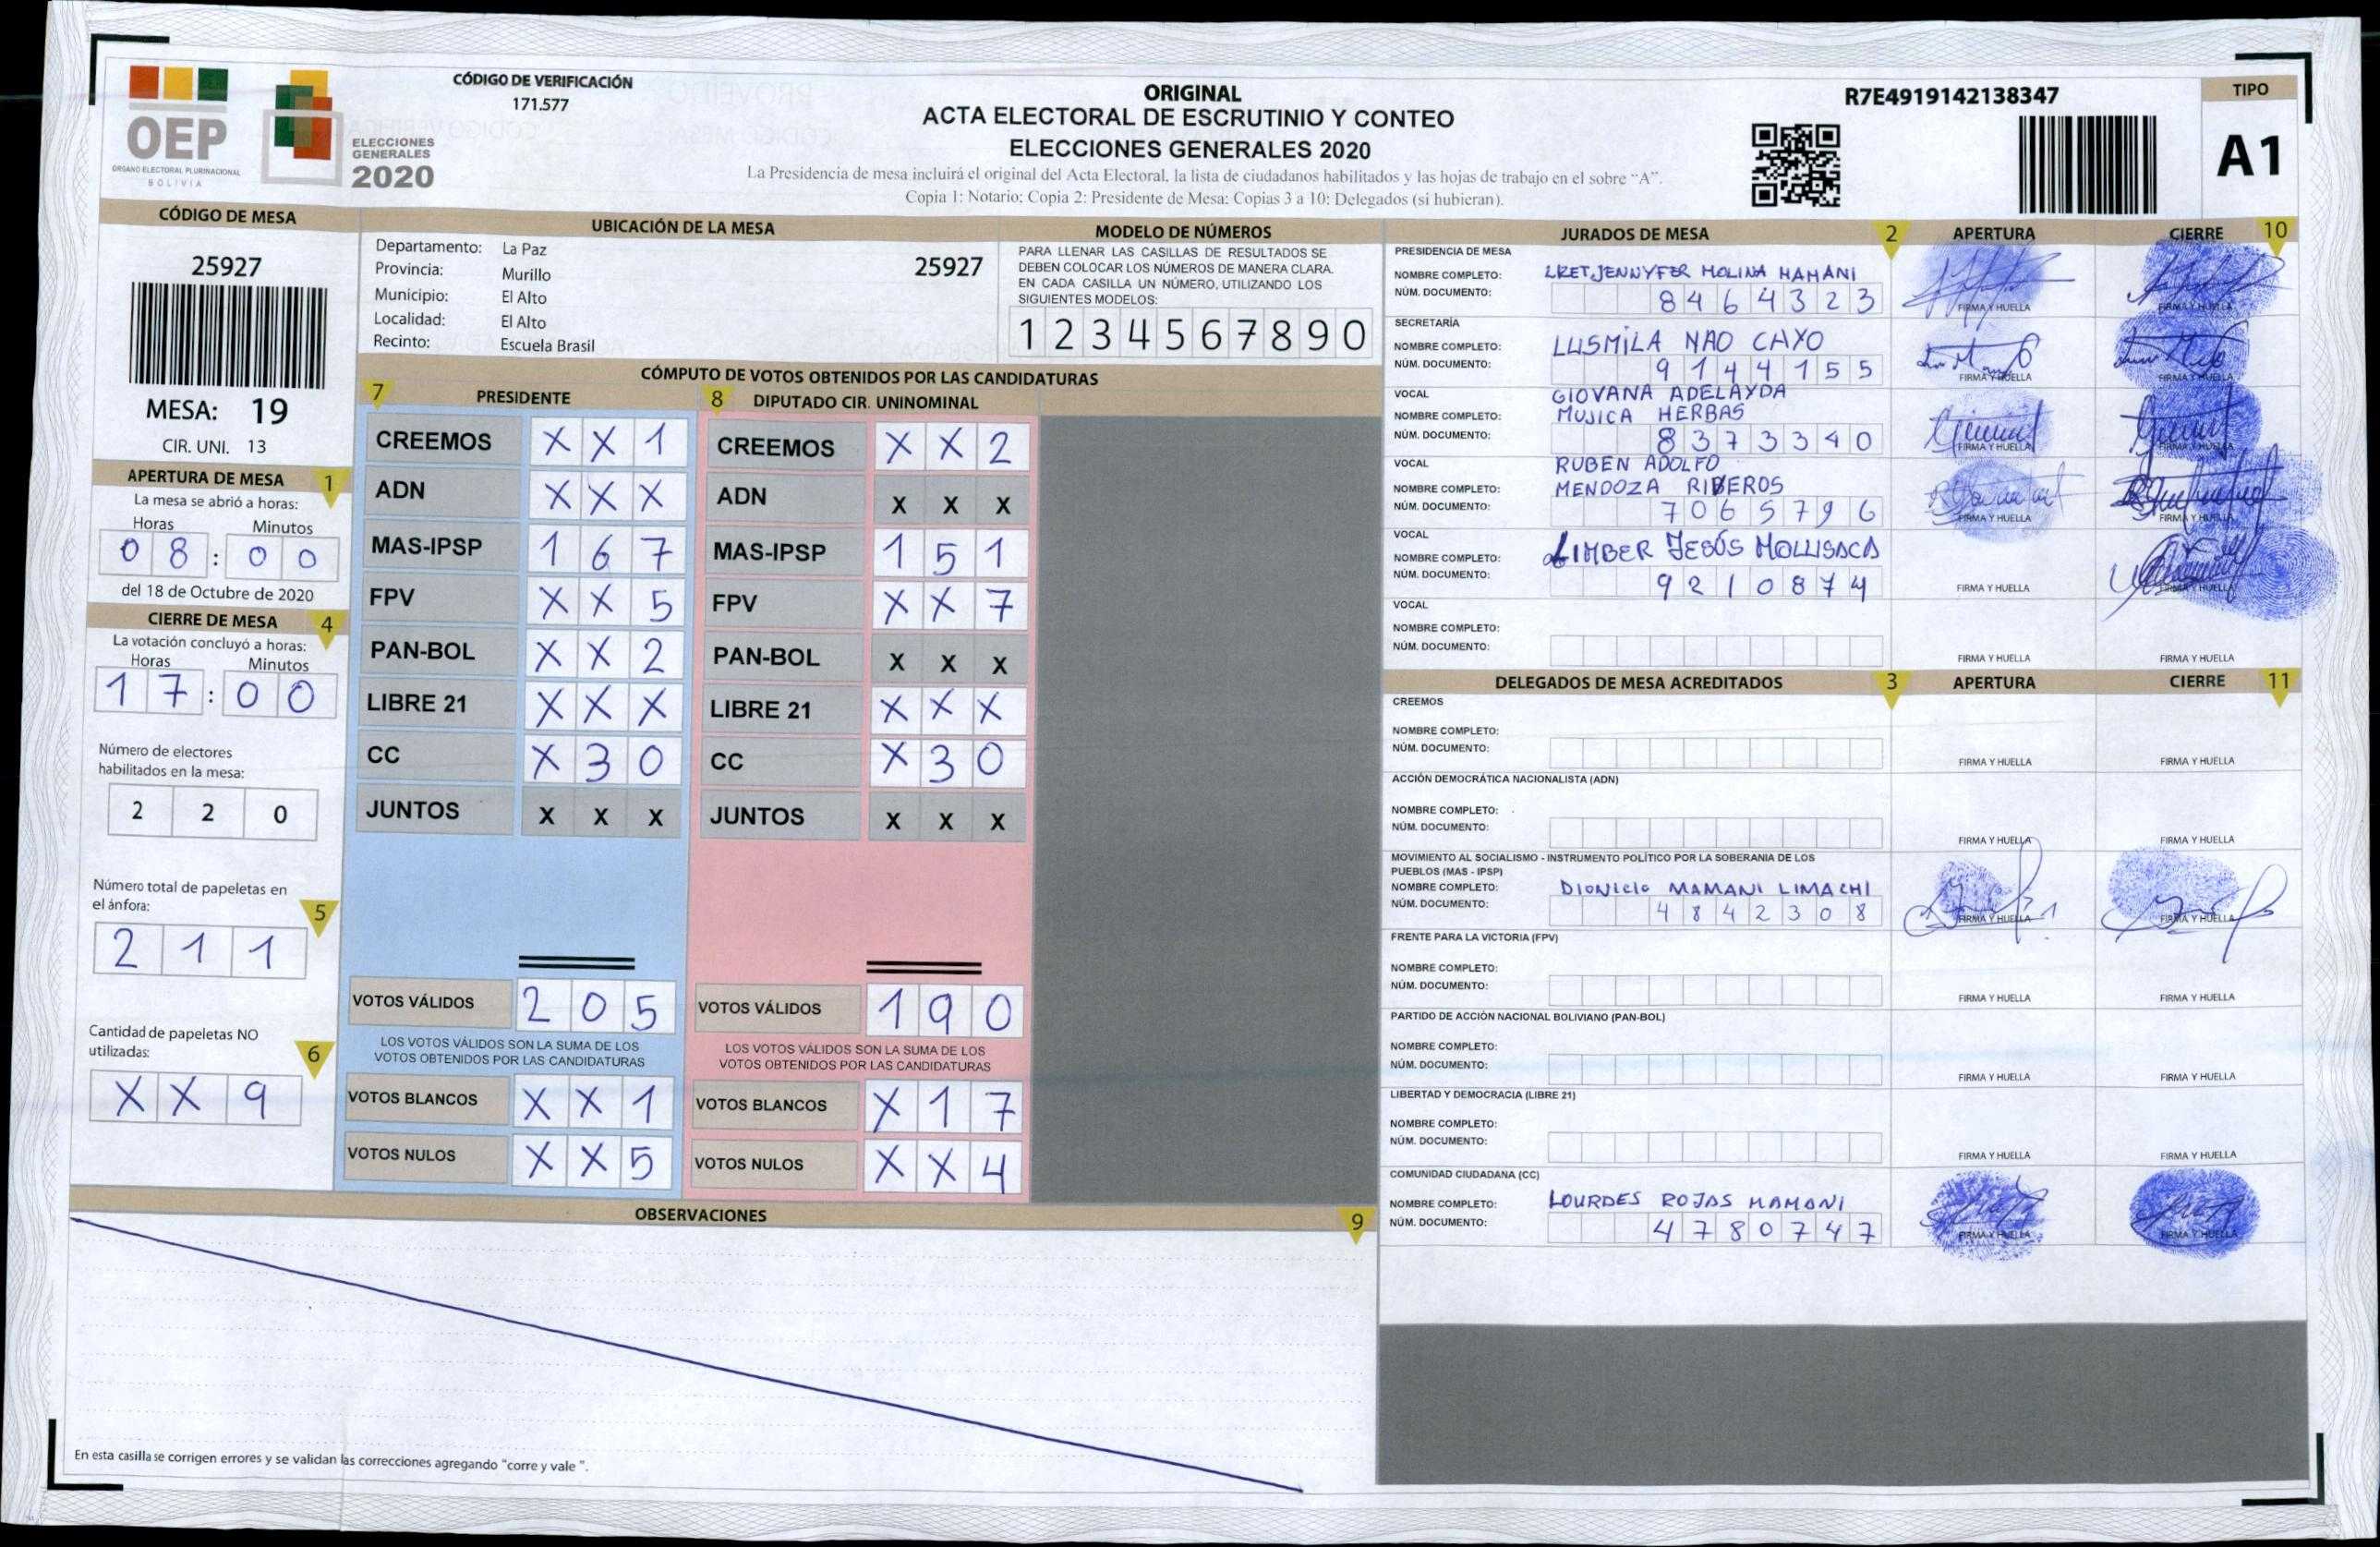 OEP
ÓRGANO ELECTORAL PLURINACIONAL
BOLIVIA
ELECCIONES
GENERALES
2020
CÓDIGO DE VERIFICACIÓN
171.577
ORIGINAL
ACTA ELECTORAL DE ESCRUTINIO Y CONTEO
ELECCIONES GENERALES 2020
La Presidencia de mesa incluirá el original del Acta Electoral, la lista de ciudadanos habilitados y las hojas de trabajo en el sobre “A”.
Copia 1: Notario; Copia 2: Presidente de Mesa; Copias 3 a 10: Delegados (si hubieran).
R7E4919142138347
TIPO
A1
CÓDIGO DE MESA
25927
MESA: 19
CIR. UNI. 13
UBICACIÓN DE LA MESA
Departamento: La Paz
25927
Provincia: Murillo
Municipio: El Alto
Localidad: El Alto
Recinto: Escuela Brasil
MODELO DE NÚMEROS
PARA LLENAR LAS CASILLAS DE RESULTADOS SE
DEBEN COLOCAR LOS NÚMEROS DE MANERA CLARA.
EN CADA CASILLA UN NÚMERO, UTILIZANDO LOS
SIGUIENTES MODELOS:
1 2 3 4 5 6 7 8 9 0
APERTURA DE MESA 1
La mesa se abrió a horas:
Horas Minutos
0 8 : 0 0
del 18 de Octubre de 2020
CIERRE DE MESA 4
La votación concluyó a horas:
Horas Minutos
1 7 : 0 0
Número de electores
habilitados en la mesa:
2 2 0
Número total de papeletas en
el ánfora: 5
2 1 1
Cantidad de papeletas NO
utilizadas: 6
X X 9
CÓMPUTO DE VOTOS OBTENIDOS POR LAS CANDIDATURAS
7 PRESIDENTE
CREEMOS X X 1
ADN X X X
MAS-IPSP 1 6 7
FPV X X 5
PAN-BOL X X 2
LIBRE 21 X X X
CC X 3 0
JUNTOS X X X
VOTOS VÁLIDOS 2 0 5
LOS VOTOS VÁLIDOS SON LA SUMA DE LOS
VOTOS OBTENIDOS POR LAS CANDIDATURAS
VOTOS BLANCOS X X 1
VOTOS NULOS X X 5
8 DIPUTADO CIR. UNINOMINAL
CREEMOS X X 2
ADN X X X
MAS-IPSP 1 5 1
FPV X X 7
PAN-BOL X X X
LIBRE 21 X X X
CC X 3 0
JUNTOS X X X
VOTOS VÁLIDOS 1 9 0
LOS VOTOS VÁLIDOS SON LA SUMA DE LOS
VOTOS OBTENIDOS POR LAS CANDIDATURAS
VOTOS BLANCOS X 1 7
VOTOS NULOS X X 4
OBSERVACIONES 9
En esta casilla se corrigen errores y se validan las correcciones agregando "corre y vale ".
JURADOS DE MESA 2 APERTURA CIERRE 10
PRESIDENCIA DE MESA
NOMBRE COMPLETO: LRET JENNYFER MOLINA MAMANI
NÚM. DOCUMENTO: 8 4 6 4 3 2 3
FIRMA Y HUELLA FIRMA Y HUELLA
SECRETARÍA
NOMBRE COMPLETO: LUSMILA NAO CAYO
NÚM. DOCUMENTO: 9 1 4 4 1 5 5
FIRMA Y HUELLA FIRMA Y HUELLA
VOCAL GIOVANA ADELAYDA
NOMBRE COMPLETO: MUJICA HERBAS
NÚM. DOCUMENTO: 8 3 7 3 3 4 0
FIRMA Y HUELLA FIRMA Y HUELLA
VOCAL RUBEN ADOLFO
NOMBRE COMPLETO: MENDOZA RIBEROS
NÚM. DOCUMENTO: 7 0 6 5 7 9 6
FIRMA Y HUELLA FIRMA Y HUELLA
VOCAL
NOMBRE COMPLETO: LIMBER JESÚS MOLLISACA
NÚM. DOCUMENTO: 9 2 1 0 8 7 4
FIRMA Y HUELLA FIRMA Y HUELLA
VOCAL
NOMBRE COMPLETO:
NÚM. DOCUMENTO:
FIRMA Y HUELLA FIRMA Y HUELLA
DELEGADOS DE MESA ACREDITADOS 3 APERTURA CIERRE 11
CREEMOS
NOMBRE COMPLETO:
NÚM. DOCUMENTO:
FIRMA Y HUELLA FIRMA Y HUELLA
ACCIÓN DEMOCRÁTICA NACIONALISTA (ADN)
NOMBRE COMPLETO:
NÚM. DOCUMENTO:
FIRMA Y HUELLA FIRMA Y HUELLA
MOVIMIENTO AL SOCIALISMO - INSTRUMENTO POLÍTICO POR LA SOBERANIA DE LOS
PUEBLOS (MAS - IPSP)
NOMBRE COMPLETO: DIONICIO MAMANI LIMACHI
NÚM. DOCUMENTO: 4 8 4 2 3 0 8
FIRMA Y HUELLA FIRMA Y HUELLA
FRENTE PARA LA VICTORIA (FPV)
NOMBRE COMPLETO:
NÚM. DOCUMENTO:
FIRMA Y HUELLA FIRMA Y HUELLA
PARTIDO DE ACCIÓN NACIONAL BOLIVIANO (PAN-BOL)
NOMBRE COMPLETO:
NÚM. DOCUMENTO:
FIRMA Y HUELLA FIRMA Y HUELLA
LIBERTAD Y DEMOCRACIA (LIBRE 21)
NOMBRE COMPLETO:
NÚM. DOCUMENTO:
FIRMA Y HUELLA FIRMA Y HUELLA
COMUNIDAD CIUDADANA (CC)
NOMBRE COMPLETO: LOURDES ROJAS MAMANI
NÚM. DOCUMENTO: 4 7 8 0 7 4 7
FIRMA Y HUELLA FIRMA Y HUELLA